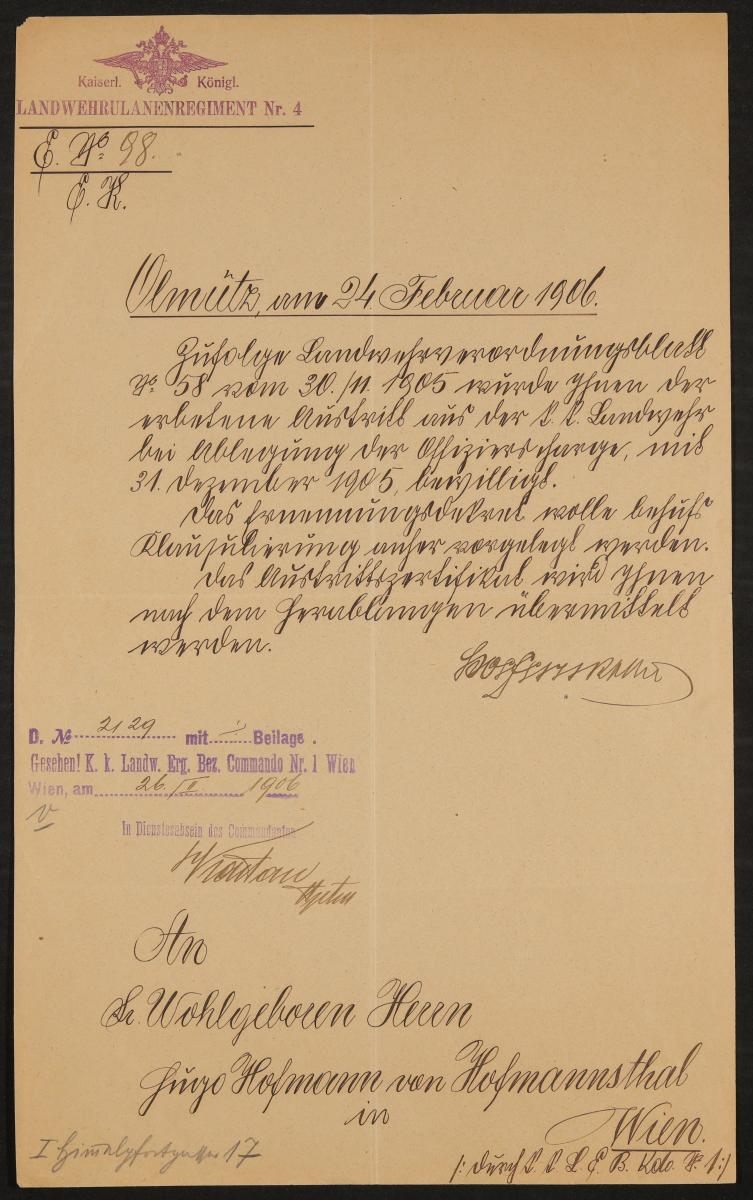 Kaiserl. Königl.
LANDWEHRULANENREGIMENT Nr. 4
E. No. 98.
E. K.
Olmütz, am 24. Februar 1906.
Zufolge Landwehrverordnungsblatt
No. 58 vom 30./11. 1905 wurde Ihnen der
erbetene Austritt aus der k. k. Landwehr
bei Ablegung der Offizierscharge, mit
31. Dezember 1905, bewilligt.
Das Ernennungsdekret wolle behufs
Klausulierung anher vorgelegt werden.
Das Austrittszertifikat wird Ihnen
nach dem Herablangen übermittelt
werden.
D. No 2129 mit Beilage.
Gesehen! K. k. Landw. Erg. Bez. Commando Nr. 1 Wien
Wien, am 26./II 1906
In Dienstesabsein des Commandanten
An
Sr. Wohlgeboren Herrn
Hugo Hofmann von Hofmannsthal
in
Wien.
/: durch k. k. L. E. B. Kdo. No. 1 :/
I Himmelpfortgasse 17